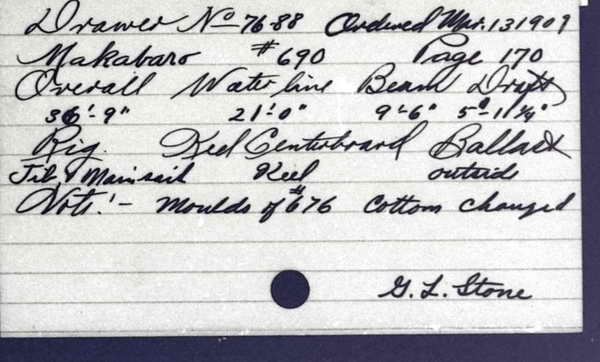 Drawer No 76-88 Ordered Mar. 13 1909
Makabaro #690 Page 170
Overall Waterline Beam Draft
36'-9" 21'-0" 9'-6" 5'-11¼"
Rig. Keel Centerboard Ballast
Jib & Mainsail Keel outside
Note:- Moulds of #676 Cottom changed
G. L. Stone